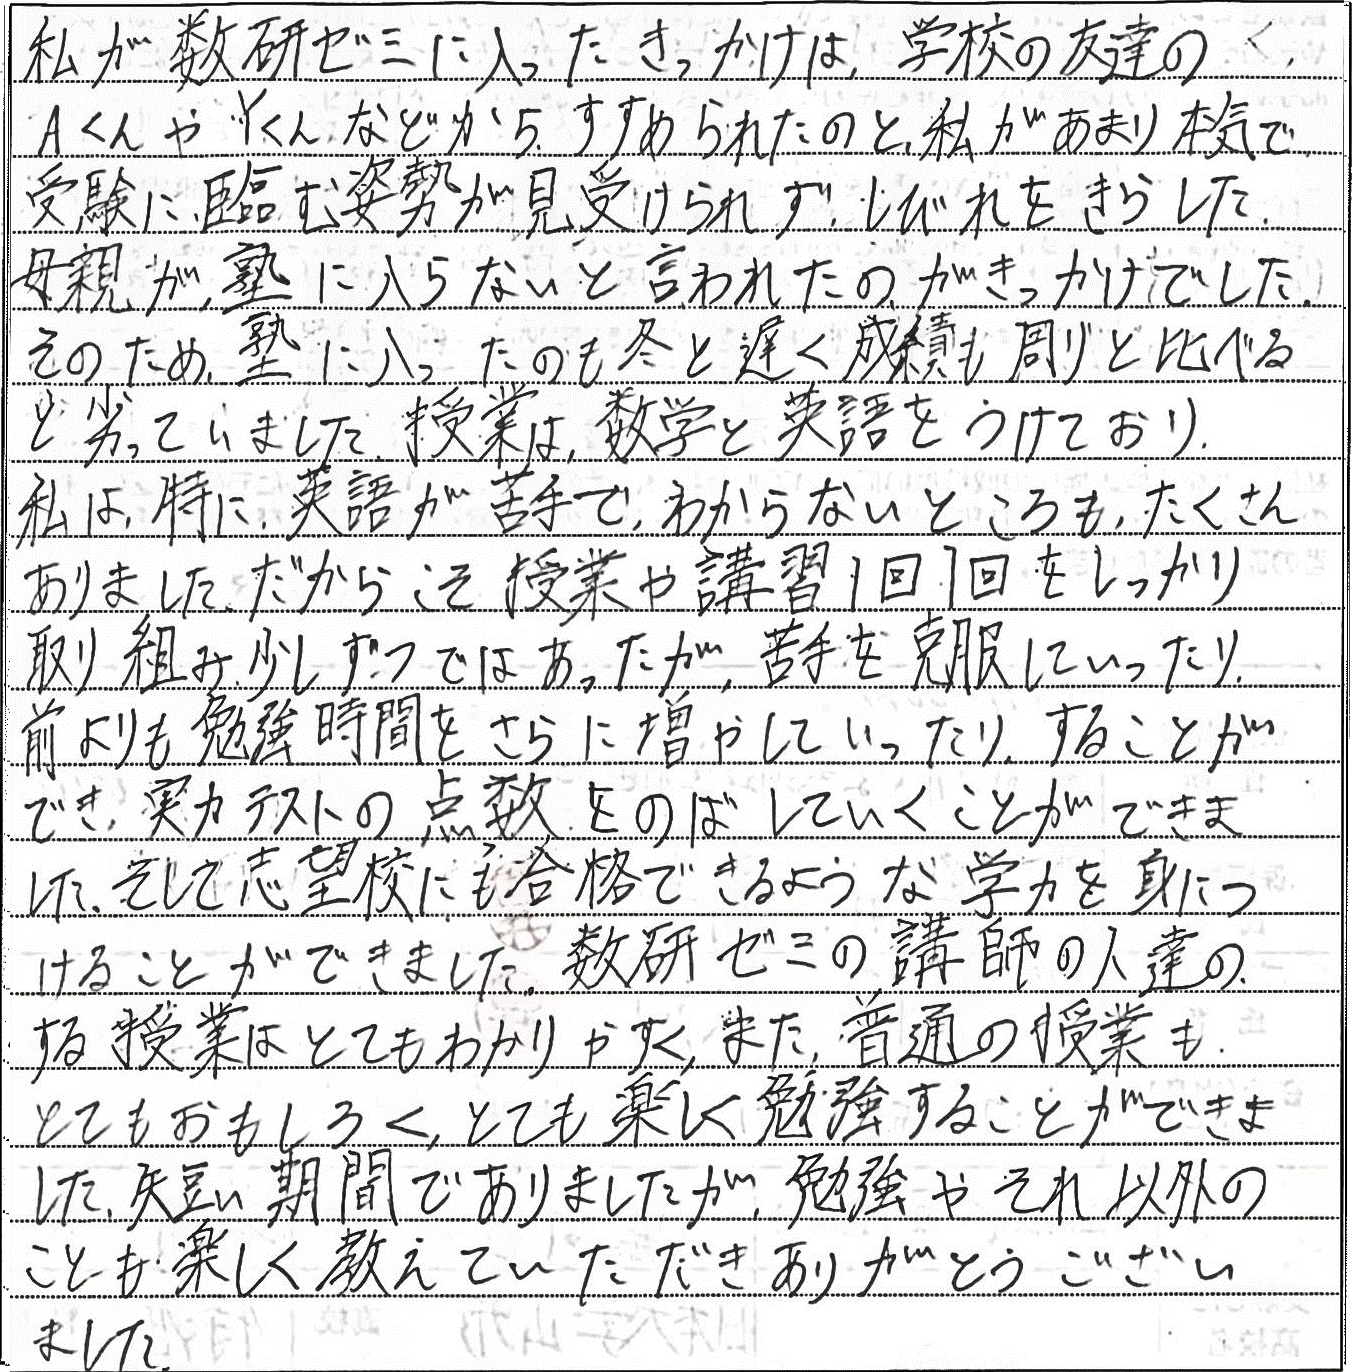 私が数研ゼミに入ったきっかけは、学校の友達の
AくんやYくんなどから、すすめられたのと、私があまり本気で
受験に、臨む姿勢が見受けられず、しびれをきらした、
母親が、塾に入らないと言われたの、がきっかけでした。
そのため、塾に入ったのも冬と遅く成績も周りと比べる
と劣っていました。授業は、数学と英語をうけており、
私は、特に、英語が苦手で、わからないところも、たくさん
ありました。だからこそ授業や講習1回1回をしっかり
取り組み、少しずつではあったが、苦手を克服していったり、
前よりも勉強時間をさらに増やしていったり、することが
でき、実力テストの点数をのばしていくことができま
した。そして志望校にも合格できるような学力を身につ
けることができました。数研ゼミの講師の人達の、
する授業はとてもわかりやすく、また、普通の授業も、
とてもおもしろく、とても楽しく勉強することができま
した。短い期間でありましたが、勉強やそれ以外の
ことも楽しく教えていただきありがとうござい
ました。